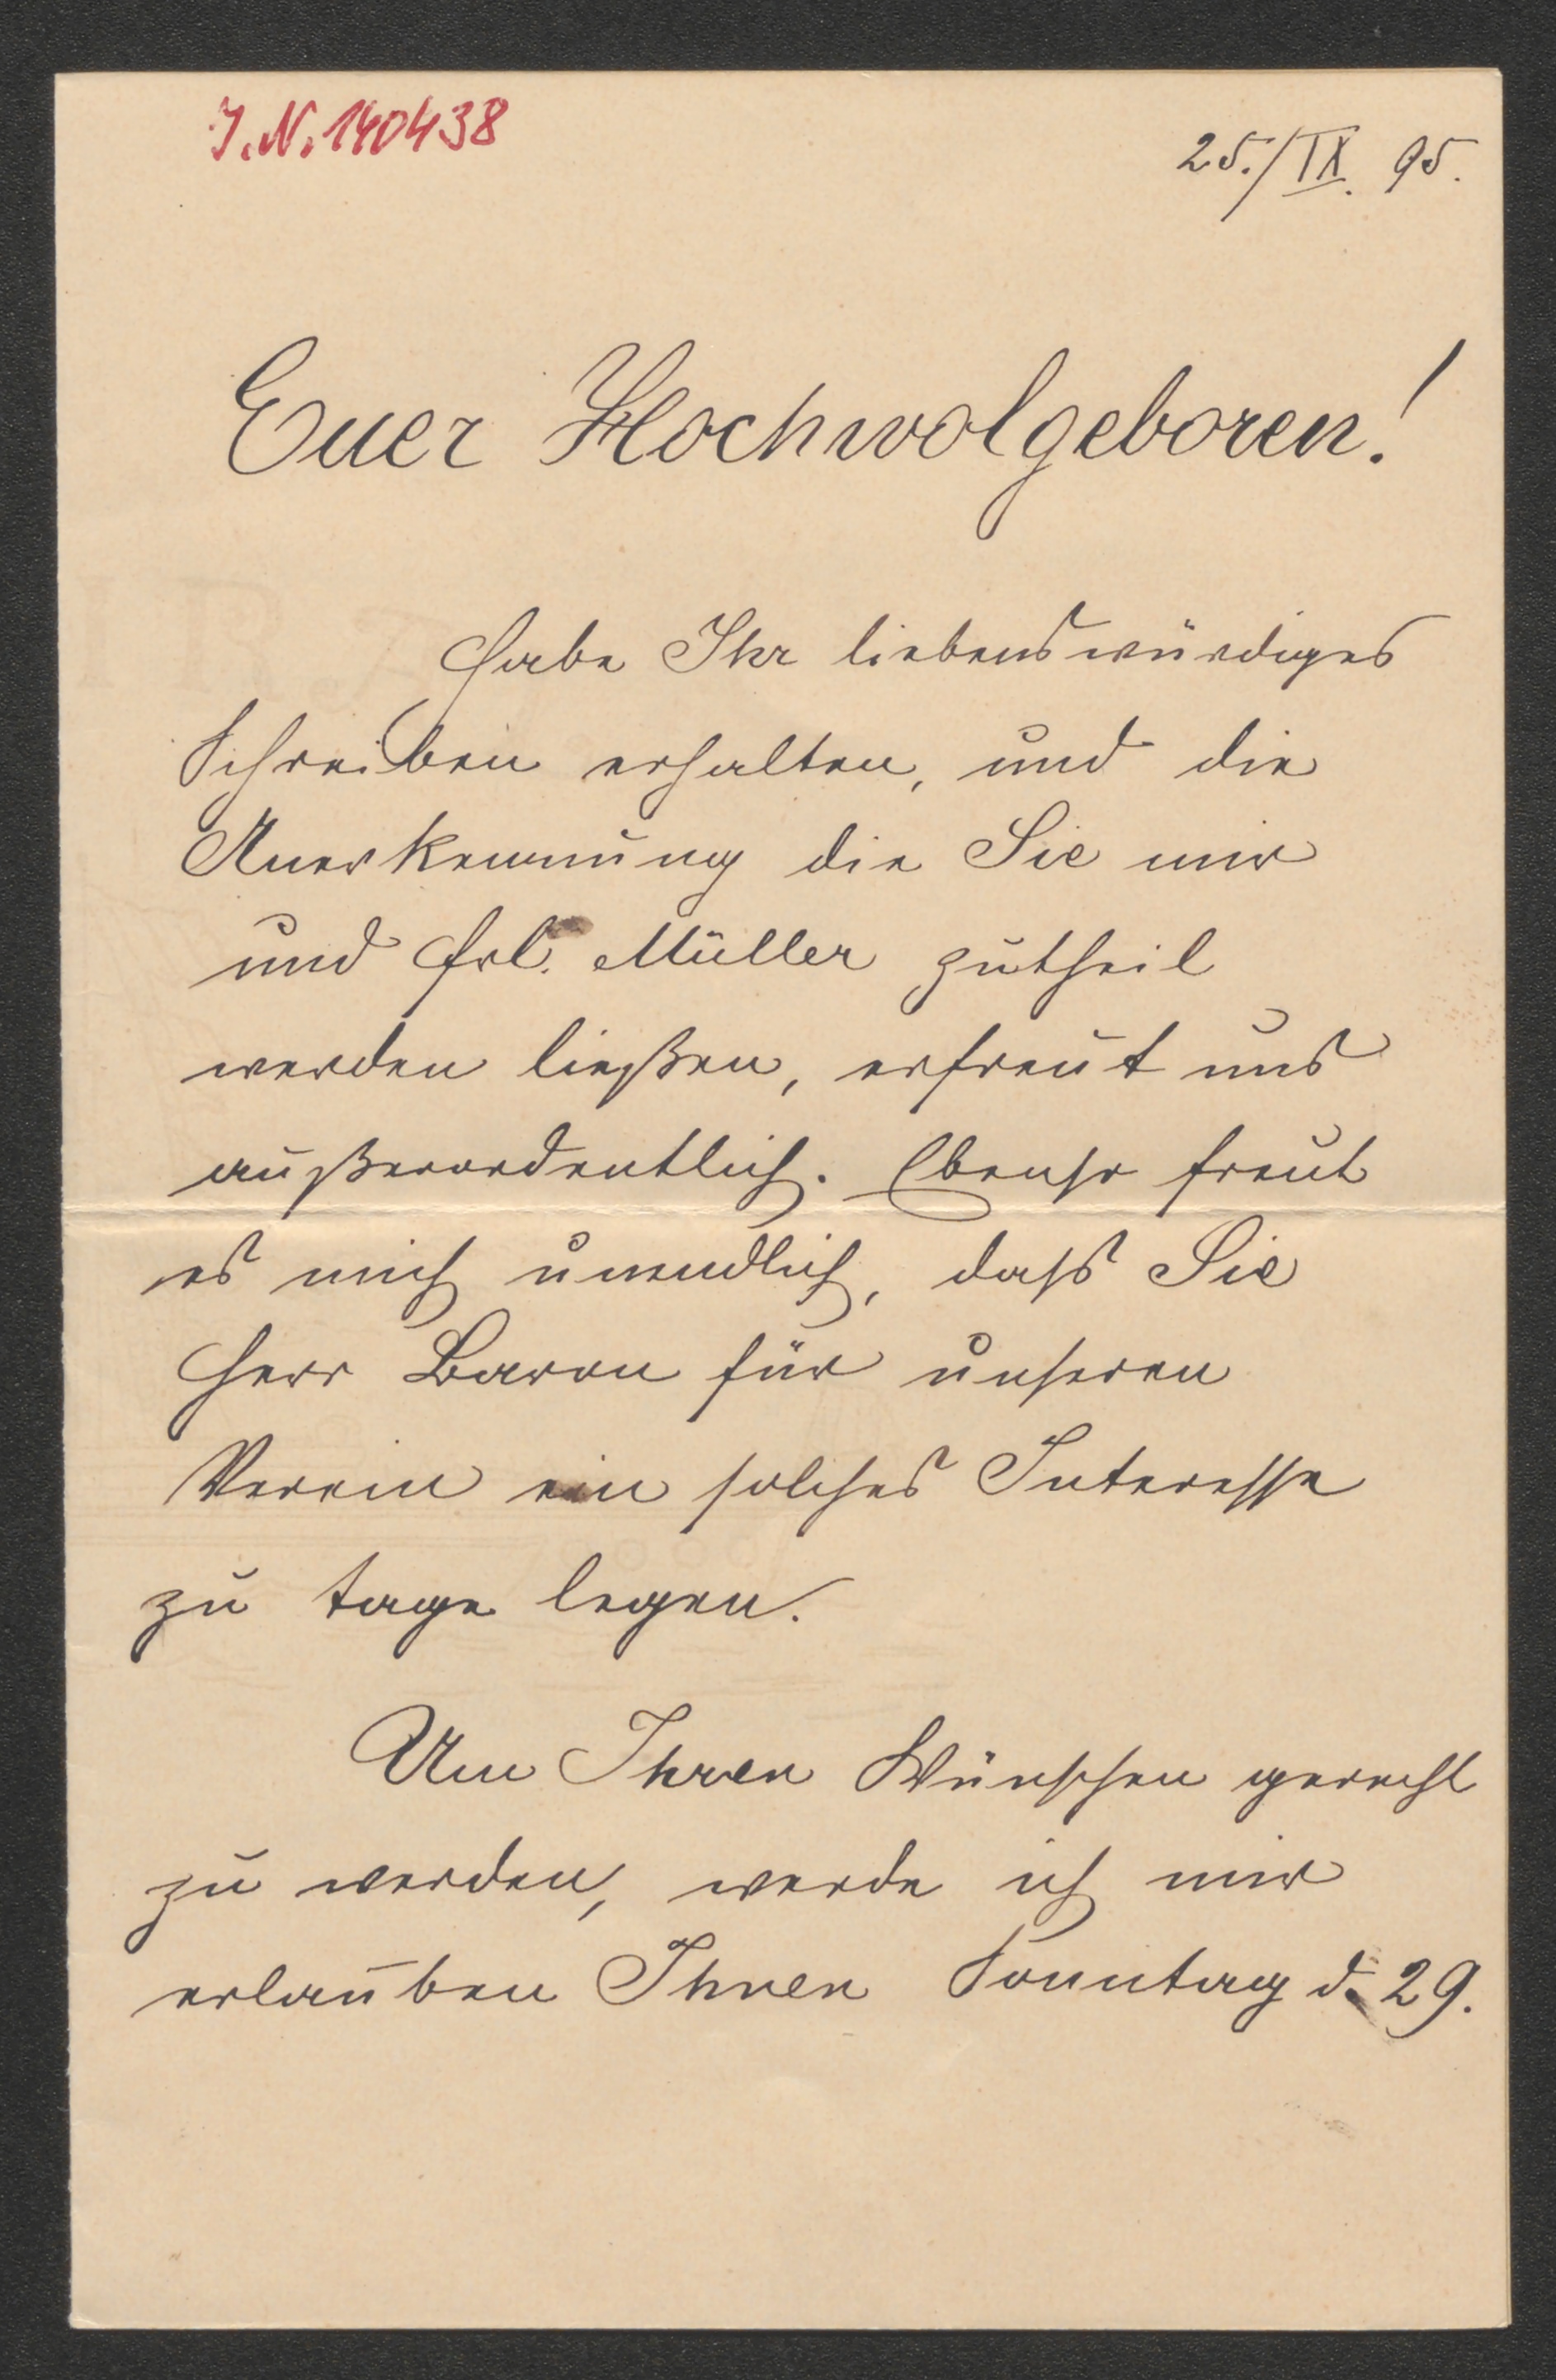 J.N. 140438
25./IX. 95.
Euer Hochwolgeboren!
Habe Ihr liebenswürdiges
Schreiben erhalten, und die
Anerkennung die Sie mir
und Frl. Müller zutheil
werden ließen, erfreut uns
außerordentlich. Ebenso freut
es mich unendlich, dass Sie
Herr Baron für unseren
Verein ein solches Interesse
zu tage legen.
Um Ihren Wünschen gerecht
zu werden, werde ich mir
erlauben Ihnen Sonntag d. 29.